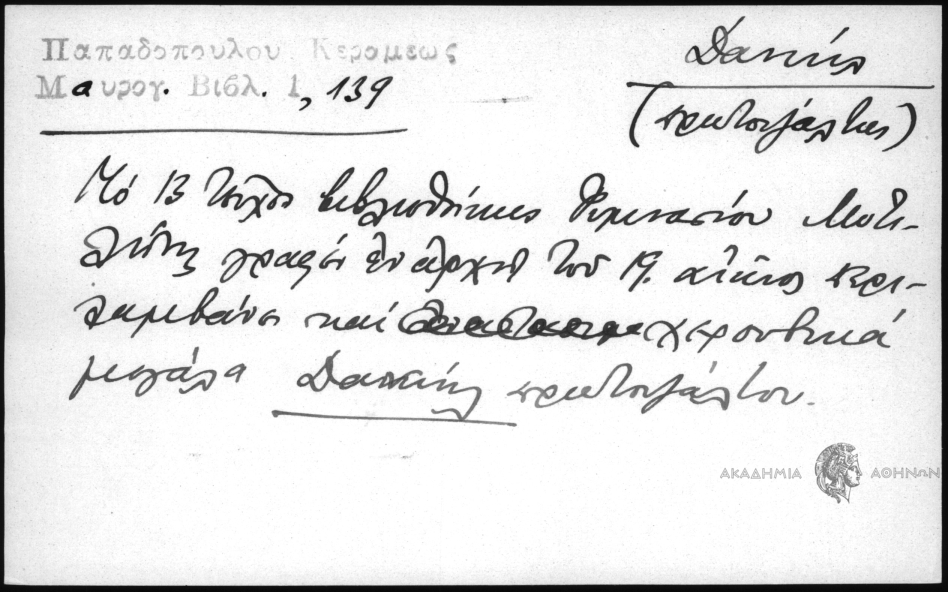 Παπαδοπούλου Κεραμεως
Μαυρογ. Βιβλ. 1, 139
Δανιήλ
(πρωτοψάλτης)
Τό 13 τεῦχος βιβλιοθήκης Γυμνασίου Μυτι-
λήνης γραφὲν ἐν ἀρχῇ τοῦ 19. αἰῶνος περι-
λαμβάνει καί χερουβικά
μεγάλα Δανιήλ πρωτοψάλτου.
ΑΚΑΔΗΜΙΑ ΑΘΗΝΩΝ